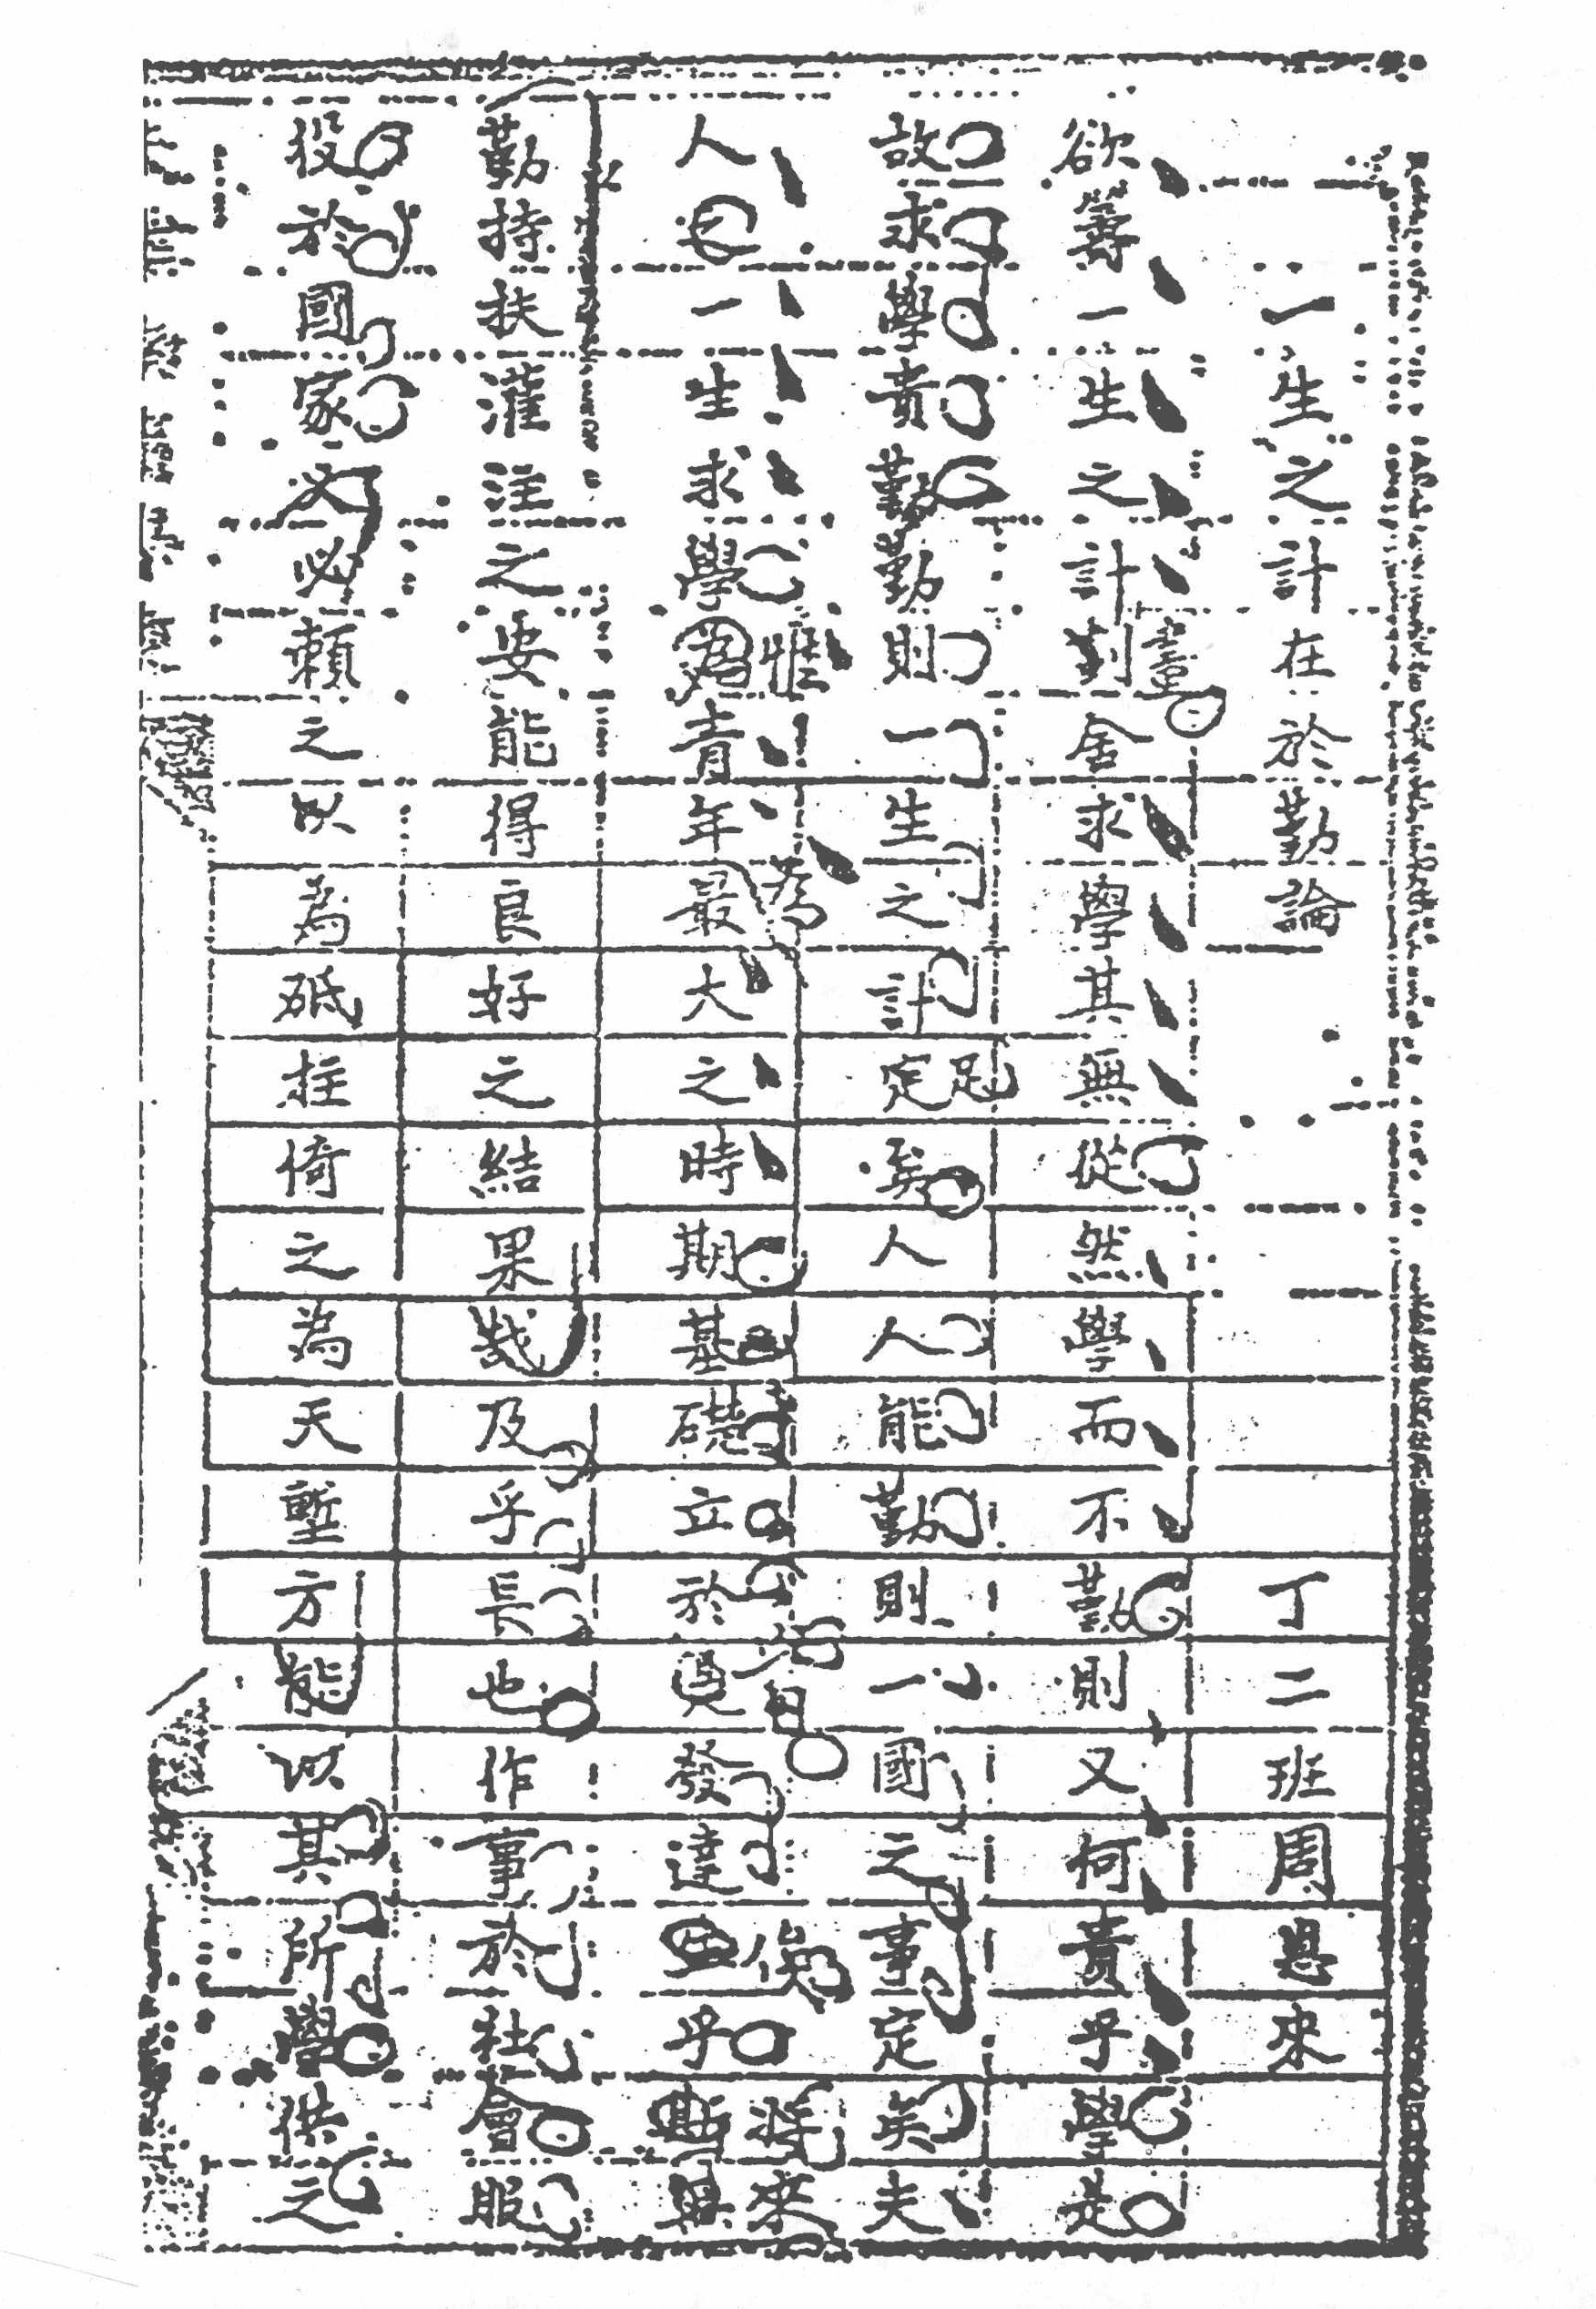 一生之計在於勤論 丁二班 周恩來
欲籌一生之計劃舍求學其無從然學而不勤則又何貴乎學是
故求學貴勤勤則一生之計定矣人人能勤則一國之事定矣夫
人一生求學惟青年最為大之時期基礎立於發達乎將來
勤持扶灌注之安能得良好之結果哉及乎長也作事於社會服
役於國家必賴之以為砥柱倚之為天塹方能以其所學供之